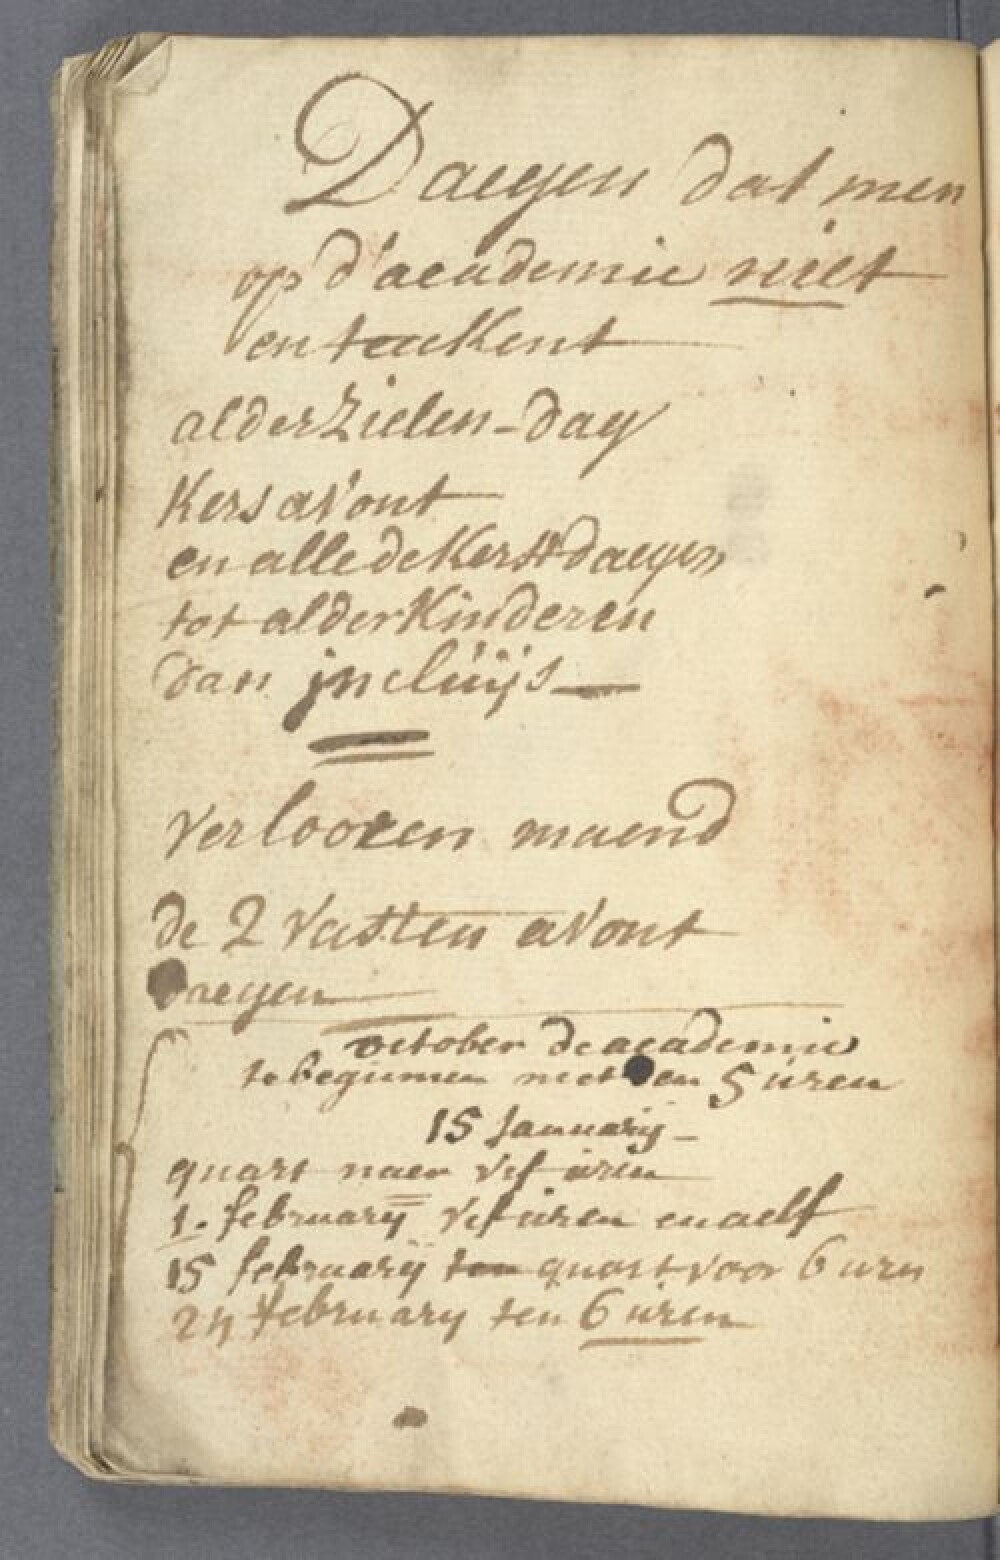 Daegen dat men
op d'academie niet
en teekent
alderzielen-dag
Kersavont
en alle de Kerstdaegen
tot alderkinderen
van jncluijs
verlooren maend
de 2 vasten avont
daegen
october de academie
te beginnen met den 5 uren
15 January
quart naer vif uren
1. february vif uren en aelf
15 february ten quart voor 6 uren
24 february ten 6 uren